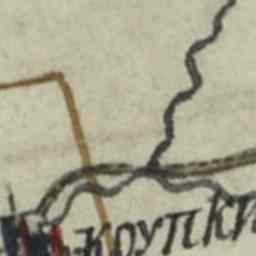 крупки